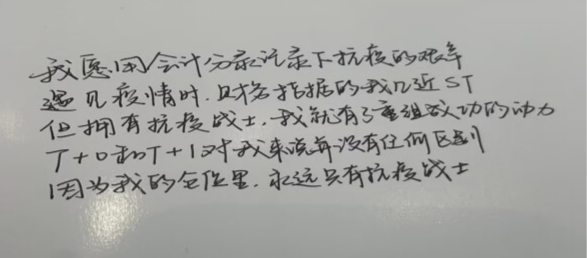 我愿用会计分录记录下抗疫的艰辛
遇见疫情时.风格拮据的我几近ST
但拥有抗疫战士.我就有了重组成功的动力
T+0和T+1对我来说并没有任何区别
因为我的仓位里.永远只有抗疫战士